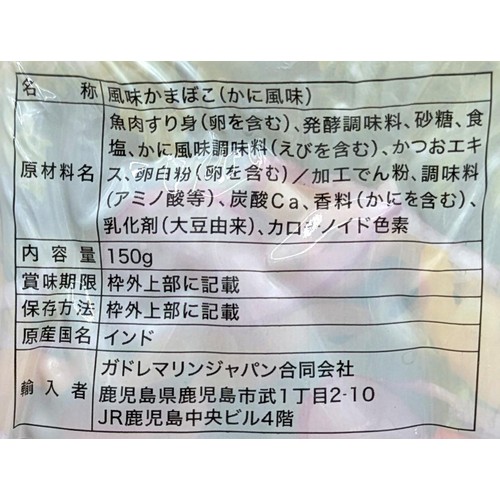 名称 風味かまぼこ(かに風味)
原材料名 魚肉すり身(卵を含む)、発酵調味料、砂糖、食
塩、かに風味調味料(えびを含む)、かつおエキ
ス、卵白粉(卵を含む)/加工でん粉、調味料
(アミノ酸等)、炭酸Ca、香料(かにを含む)、
乳化剤(大豆由来)、カロテノイド色素
内容量 150g
賞味期限 枠外上部に記載
保存方法 枠外上部に記載
原産国名 インド
輸入者 ガドレマリンジャパン合同会社
鹿児島県鹿児島市武1丁目2-10
JR鹿児島中央ビル4階